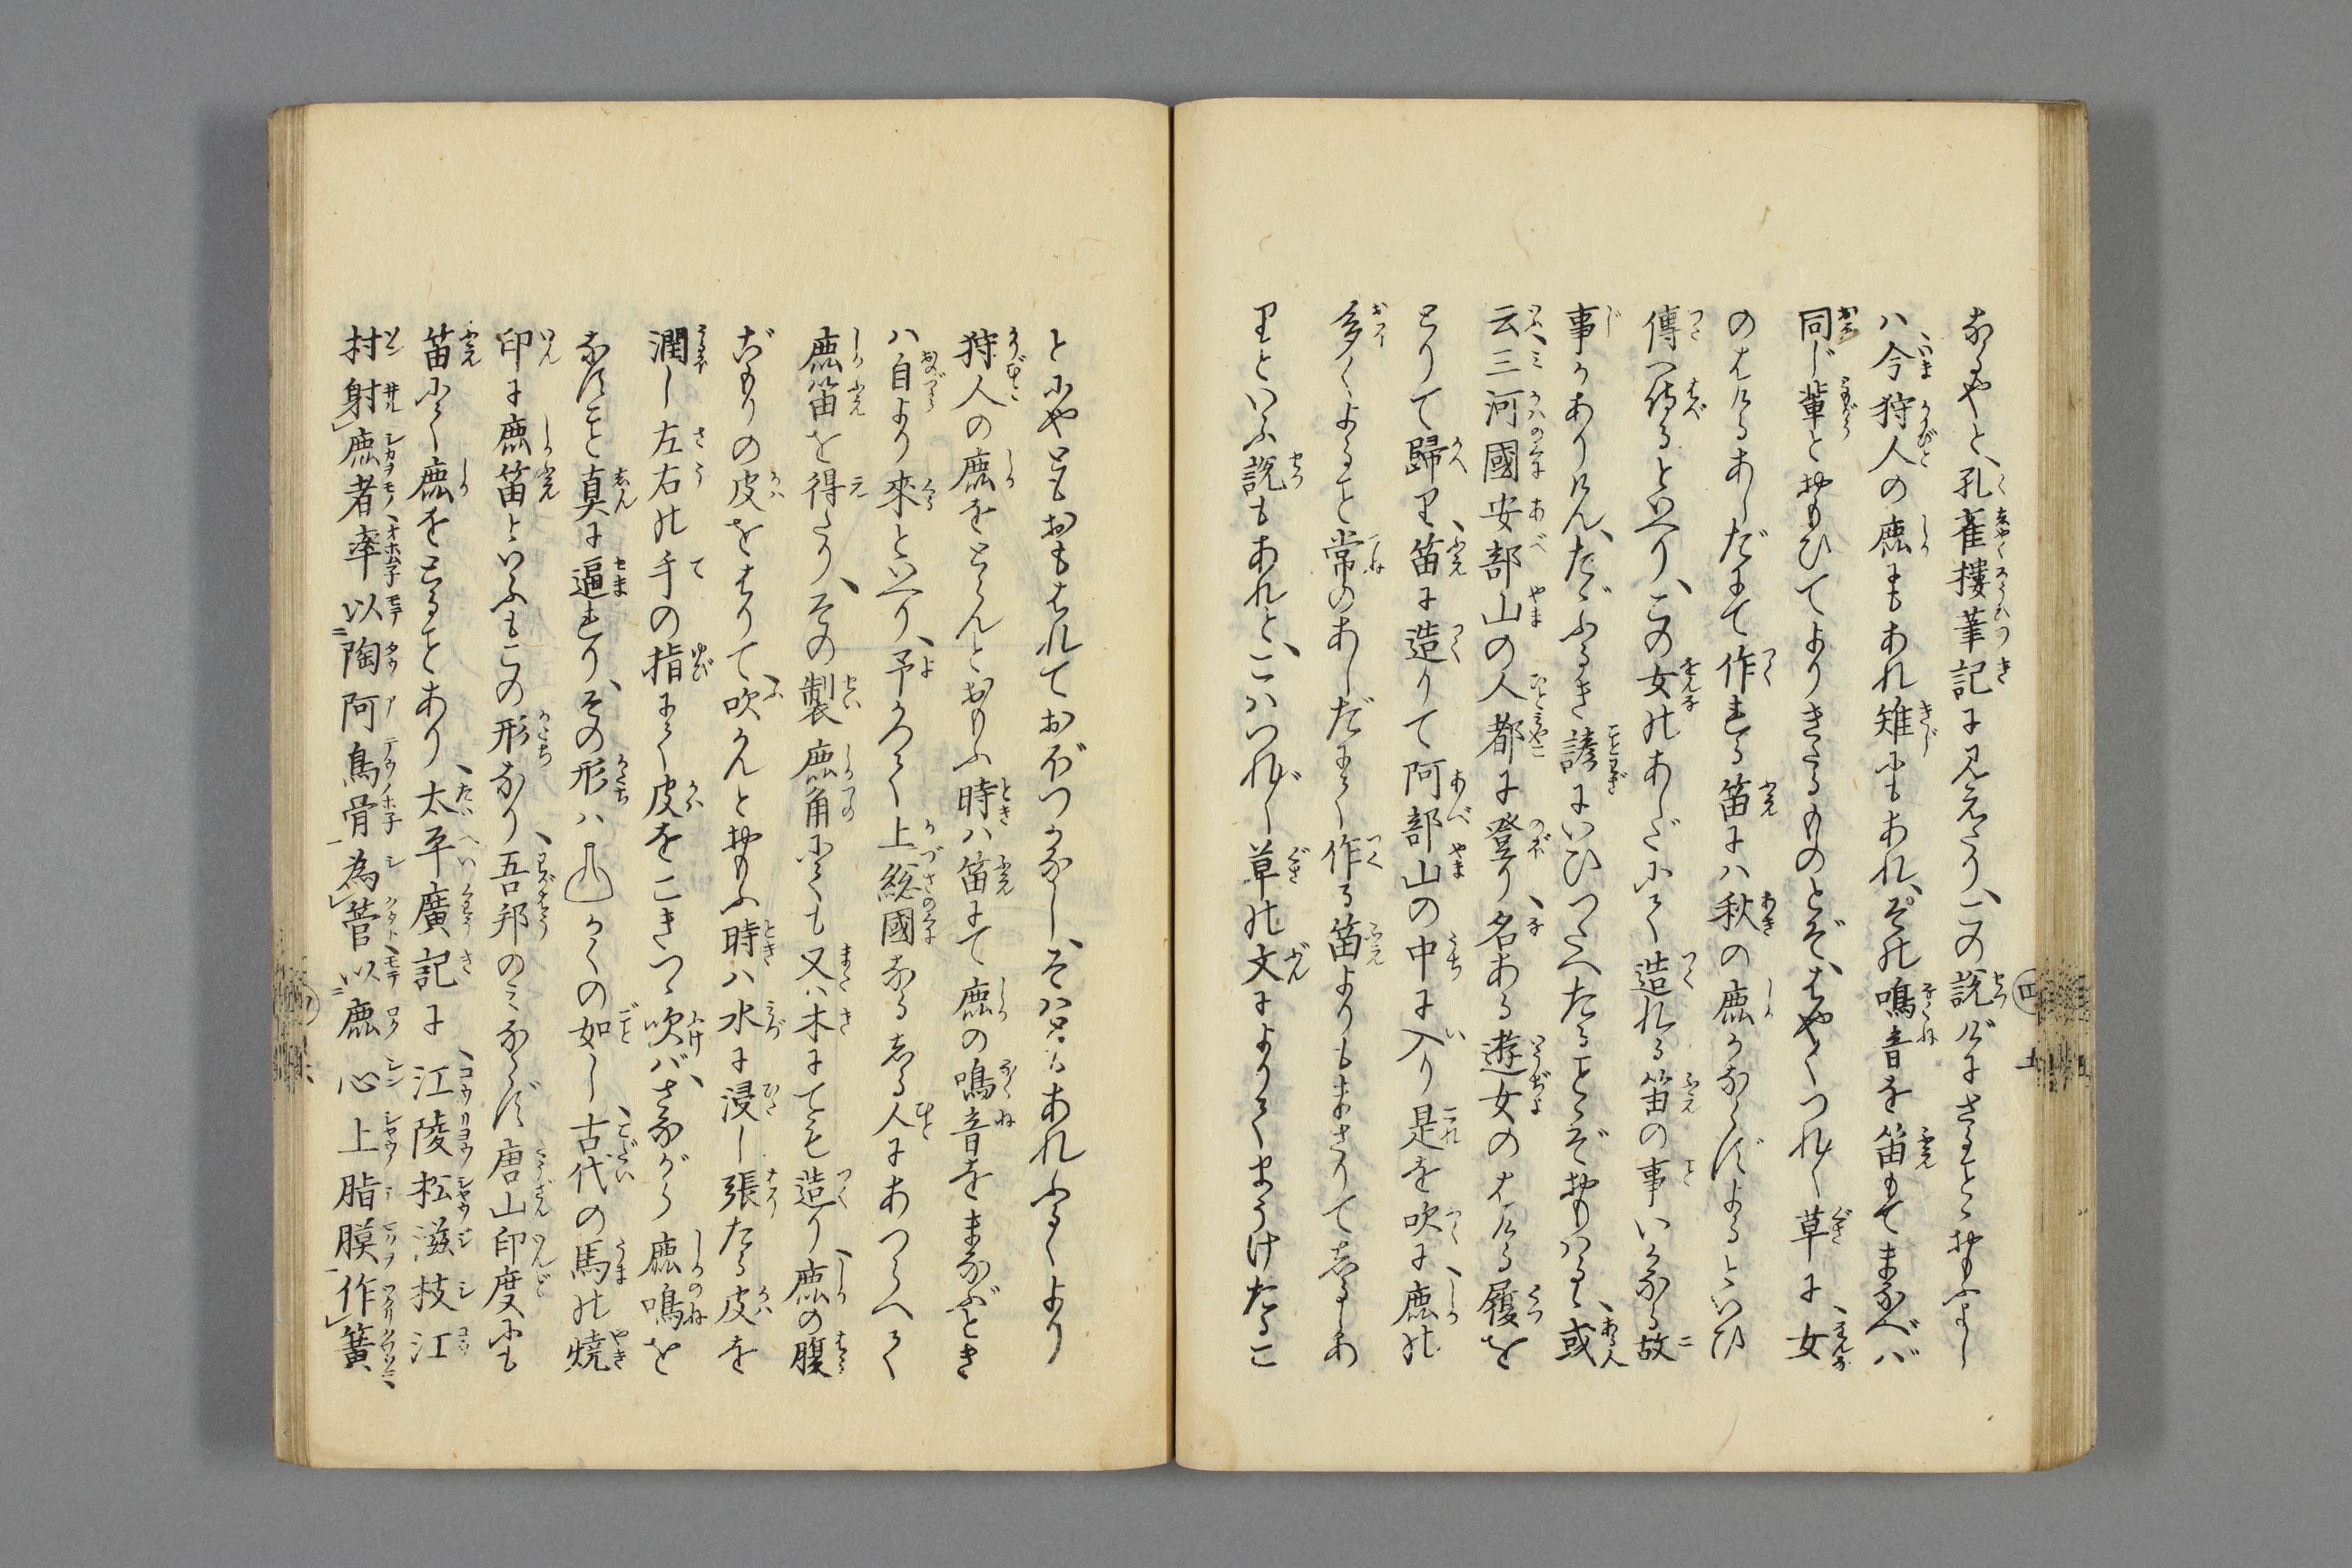 なるやと、孔雀樓筆記に見えたり、この説げにさることゝおもふよし
ハ今狩人の鹿にもあれ雉にもあれ、その鳴音を笛もてまなべバ
同じ輩とおもひてよりきたるものとぞ、はやくつれ〳〵草に、女
のはけるあしだにて作れる笛にハ秋の鹿かならずよるといひ
傳へ侍るといへり、この女のあしだにて造れる笛の事いかなる故
事かありけん、たゞふるき諺にいひつたへたることぞおもハるゝ、或人
云三河國安部山の人都に登り、名ある遊女のはける履を
とりて歸り、笛に造りて阿部山の中に入り是を吹に、鹿の
多くよること常のあしだにて作る笛よりもまさりてしるしあ
りといふ説もあれど、こハつれ〴〵草の文によりてまうけたるこ
とにやともおもはれておぼつかなし、そハとまれかくあれふるくより
狩人の鹿をとらんとおもふ時ハ笛にて鹿の鳴音をまなぶとき
ハ自より來といへり、予かつて上総國なるしる人にあつらへて
鹿笛を得たり、その製鹿角にても又ハ木にても造り、鹿の腹
ごもりの皮をはりて、吹かんとおもふ時ハ水に浸し張たる皮を
潤し左右の手の指にて皮をこきつゝ吹バ、さながら鹿鳴を
なすこと真に逼れり、その形ハかくの如し、古代の馬の焼
印に鹿笛といふもこの形なり、吾邦のみならず唐山印度にも
笛にて鹿をとることあり、太平廣記に、江陵松滋枝江
村射鹿者率以陶阿鳥骨為管以鹿心上脂膜作簧、